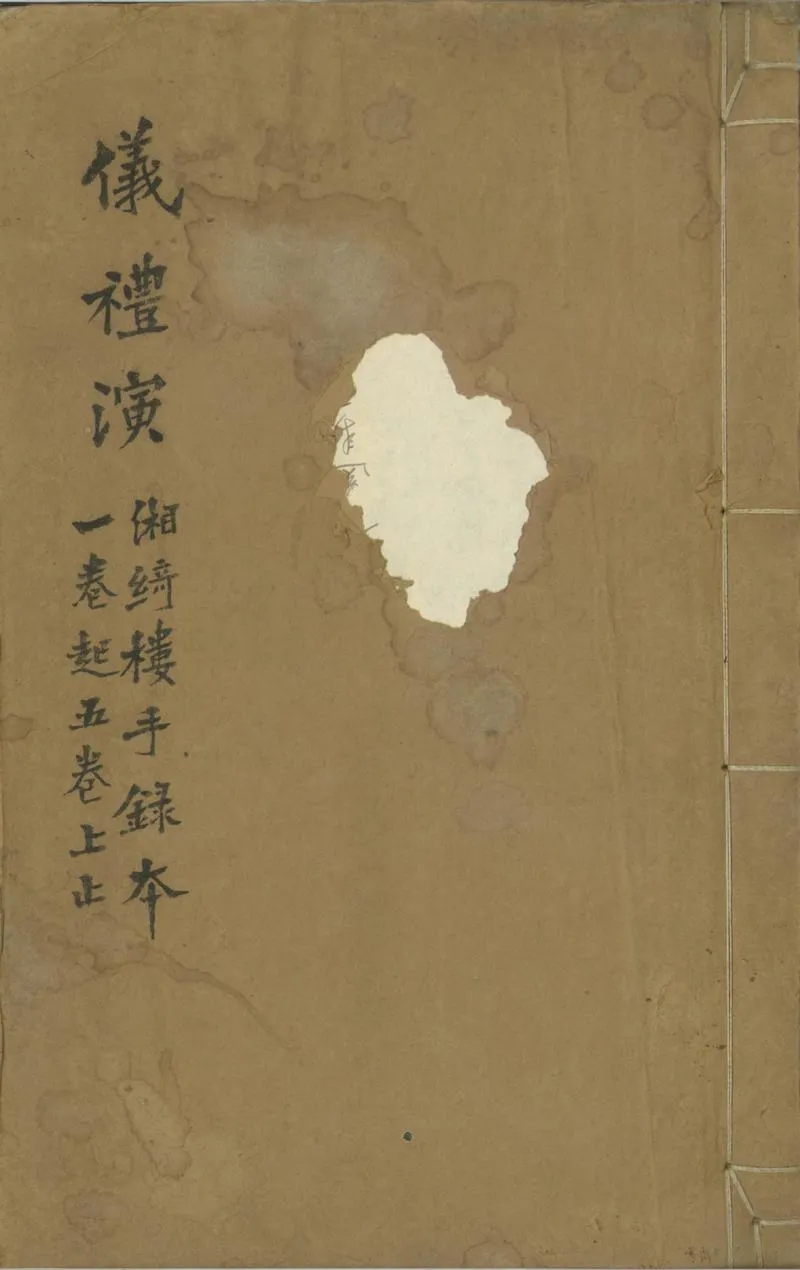 儀禮演
湘綺樓手錄本
一卷起五卷上止